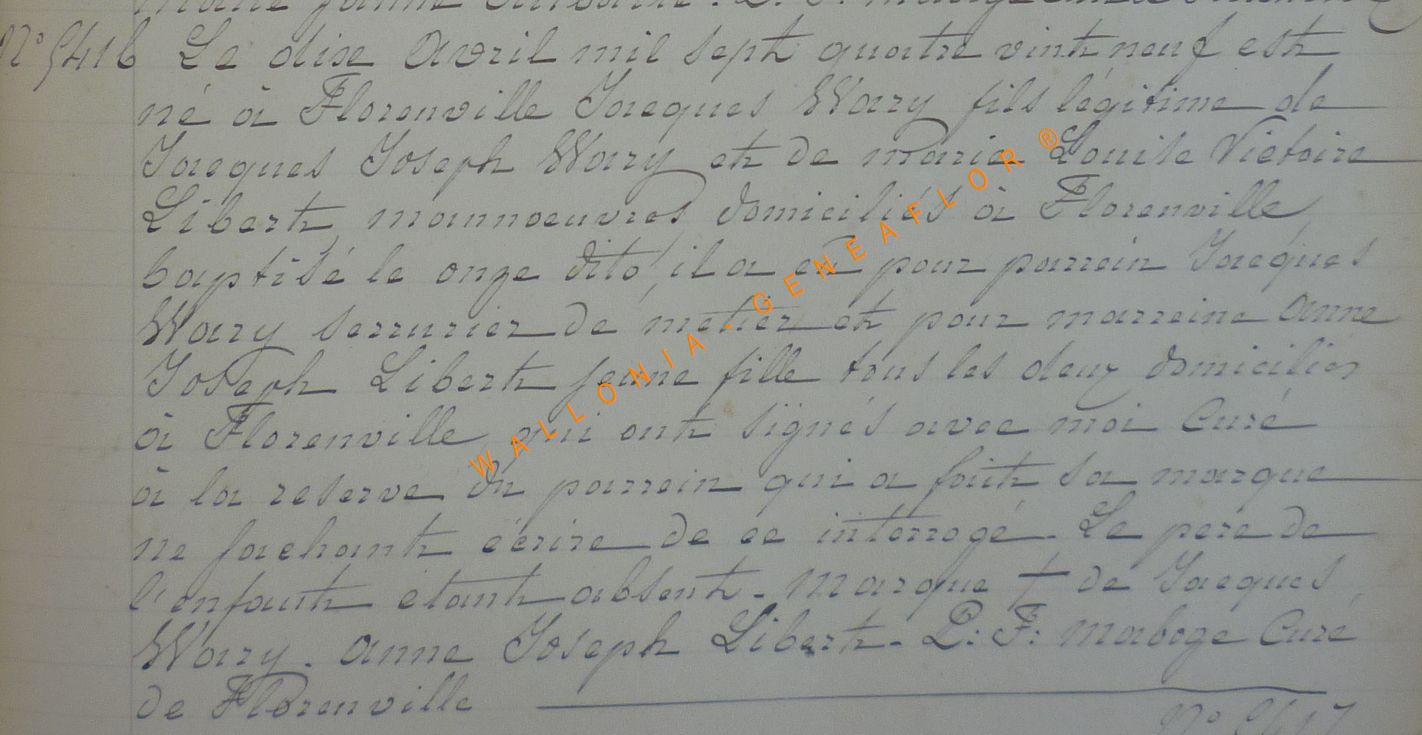 N° 5416 Le dix Avril mil sept quatre vint neuf est
né à Florenville Jacques Wary fils légitime de
Jacques Joseph Wary et de marie Louise Victoire
Libert mannoeuvres domiciliés à Florenville
baptisé le onze dito, il a eu pour parrein Jacques
Wary serrurier de métier et pour marreine Anne
Joseph Libert jeune fille tous les deux domiciliés
à Florenville qui ont signés avec moi Curé
à la reserve du parrein qui a fait sa marque
ne sachant écrire de ce interrogé. Le père de
l'enfant étant absent. Marque + de Jacques
Wary. Anne Joseph Libert. L: F: Maboge Curé
de Florenville
N° 5417
WALLONIA - GENEAFLOR ®